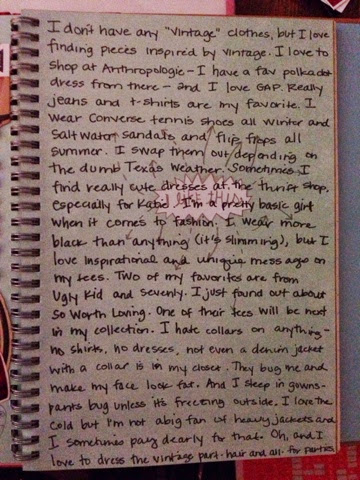 I don't have any "vintage" clothes, but I love
finding pieces inspired by vintage. I love to
shop at Anthropologie - I have a fav polkadot
dress from there - and I love GAP. Really
jeans and t-shirts are my favorite. I
wear Converse tennis shoes all winter and
salt water sandals and flip flops all
summer. I swap them out depending on
the dumb Texas weather. Sometimes I
find really cute dresses at the thrift shop,
especially for Kate! I'm a pretty basic girl
when it comes to fashion. I wear more
black than anything (it's slimming), but I
love inspirational and unique messages on
my tees. Two of my favorites are from
Ugly Kid and Sevenly. I just found out about
So Worth Loving. One of their tees will be next
in my collection. I hate collars on anything -
no shirts, no dresses, not even a denim jacket
with a collar is in my closet. They bug me and
make my face look fat. And I sleep in gowns -
pants bug unless it's freezing outside. I love the
cold but I'm not a big fan of heavy jackets and
I sometimes pay dearly for that. Oh, and I
love to dress the vintage part - hair and all - for parties